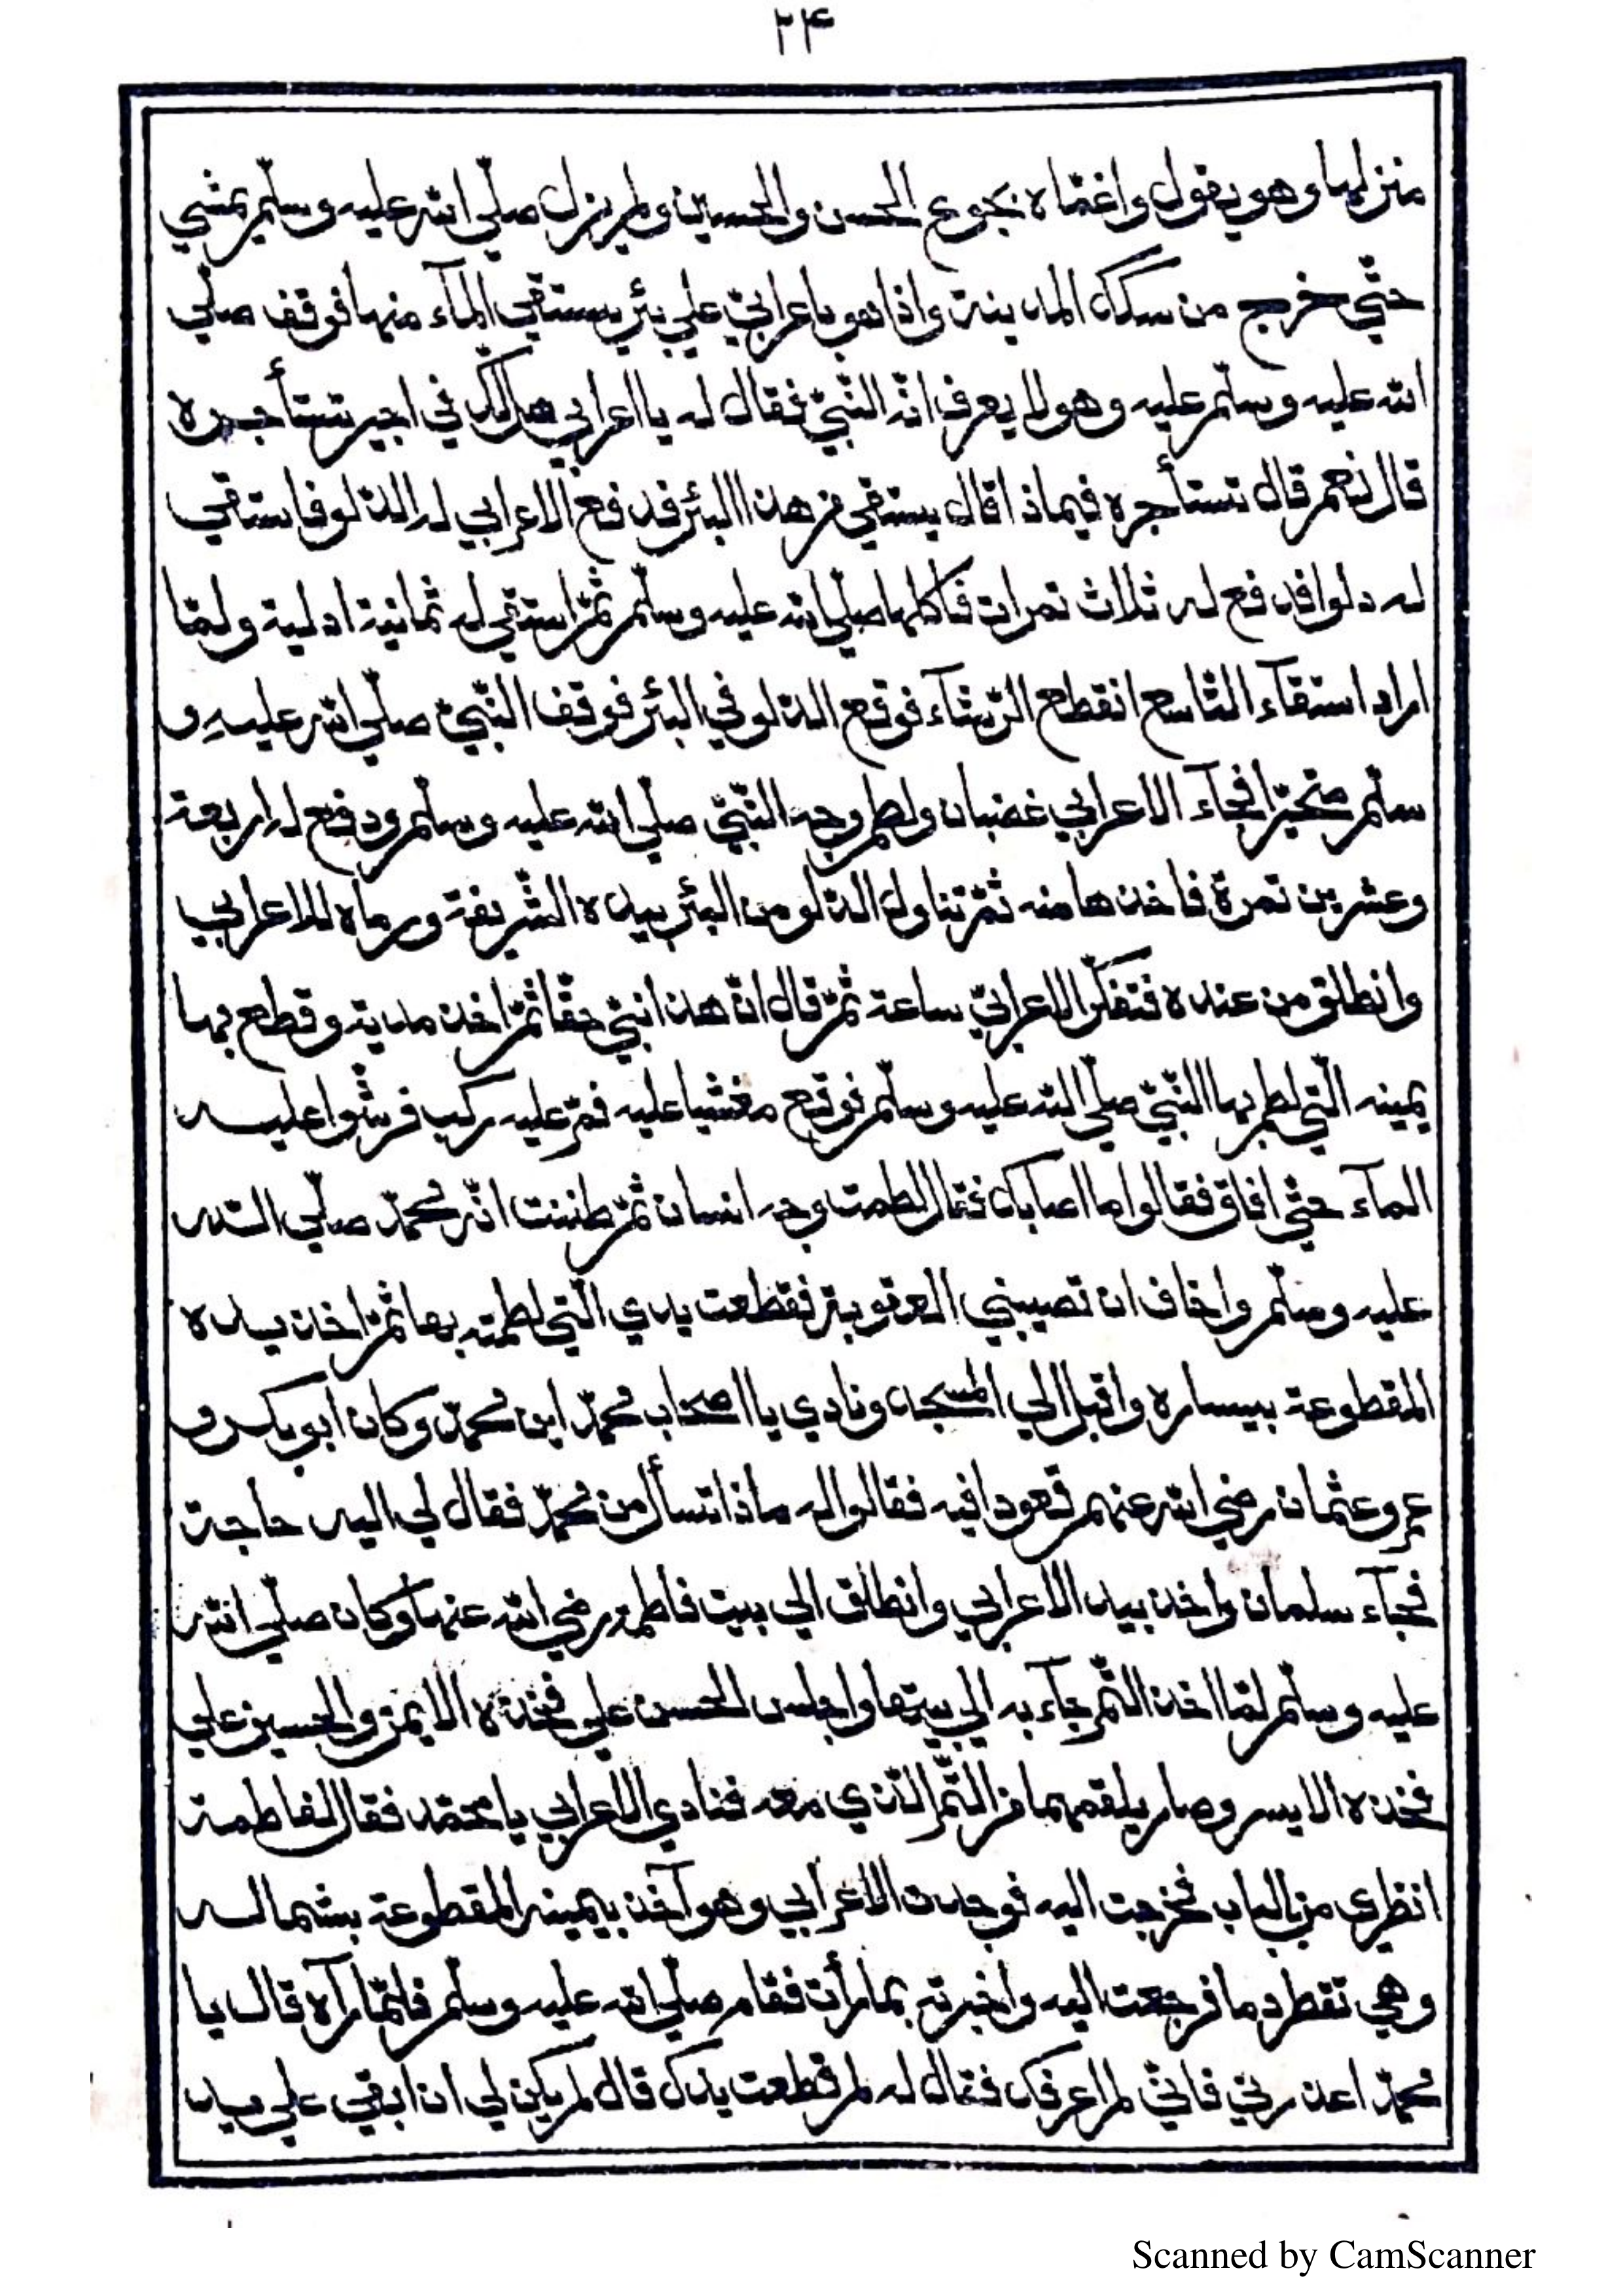 ۲۴
منزلها وهو يقول واغمّاه بجوع الحسن والحسين ولم يزل صلّي الله عليه وسلّم يمشي
حتّي خرج من سكك المدينة واذا هو باعرابيّ علي بئر يستقي المآء منها فوقف صلّي
الله عليه وسلّم عليه وهو لا يعرف انّه النّبيّ فقال له يا اعرابي هل لك في اجير تستأجره
قال نعم قال تستأجره فيماذا قال يستقي من هذا البئر فدفع الاعرابي له الدّلو فاستقي
له دلوا فدفع له ثلاث تمرات فاكلها صلّي الله عليه وسلّم ثمّ استقي له ثمانية ادلية ولمّا
اراد استقآء التّاسع انقطع الرّشآء فوقع الدّلو في البئر فوقف النّبيّ صلّي الله عليهِ و
سلّم متحيّرا فجآء الاعرابي غضبان ولطم وجه النّبيّ صلّي الله عليه وسلّم ودفع له اربعة
وعشرين تمرة فاخذها منه ثمّ تناول الدّلو من البئر بيده الشّريفة ورماه للاعرابي
وانطلق من عنده فتفكّر الاعرابيّ ساعة ثمّ قال انّ هذا نبيّ حقّا ثمّ اخذ مدية وقطع بها
يمينه الّتي لطم بها النّبيّ صلّي الله عليه وسلّم فوقع مغشيا عليه فمرّ عليه ركب فرشّوا عليه
المآء حتّي افاق فقالوا ما اصابك فقال لطمت وجه انسان ثمّ ظننت انّه محمّد صلّي الله
عليه وسلّم واخاف ان تصيبني العقوبة فقطعت يدي الّتي لطمته بها ثمّ اخذ يده
المقطوعة بيساره واقبل الي المسجد ونادي يا اصحاب محمّد اين محمّد وكان ابو بكر و
عمر وعثمان رضي الله عنهم قعودا فيه فقالوا له ماذا تسأل من محمّد فقال لي اليه حاجة
فجآء سلمان واخذ بيد الاعرابي وانطلق الي بيت فاطمة رضي الله عنها وكان صلّي الله
عليه وسلّم لمّا اخذ التّمر جآء به الي بيتها واجلس الحسن علي فخذه الايمن والحسين علي
فخذه الايسر وصار يلقمهما من التّمر الّذي معه فنادي الاعرابي يا محمّد فقال لفاطمة
انظري من بالباب فخرجت اليه فوجدت الاعرابي وهو آخذ بيمينه المقطوعة بشماله
وهي تقطر دما فرجعت اليه واخبرته بما رأت فقام صلّي الله عليه وسلّم فلمّا رآه قال يا
محمّد اعذرني فانّي لم اعرفك فقال له لم قطعت يدك قال لم يكن لي ان ابقي علي يد
Scanned by CamScanner